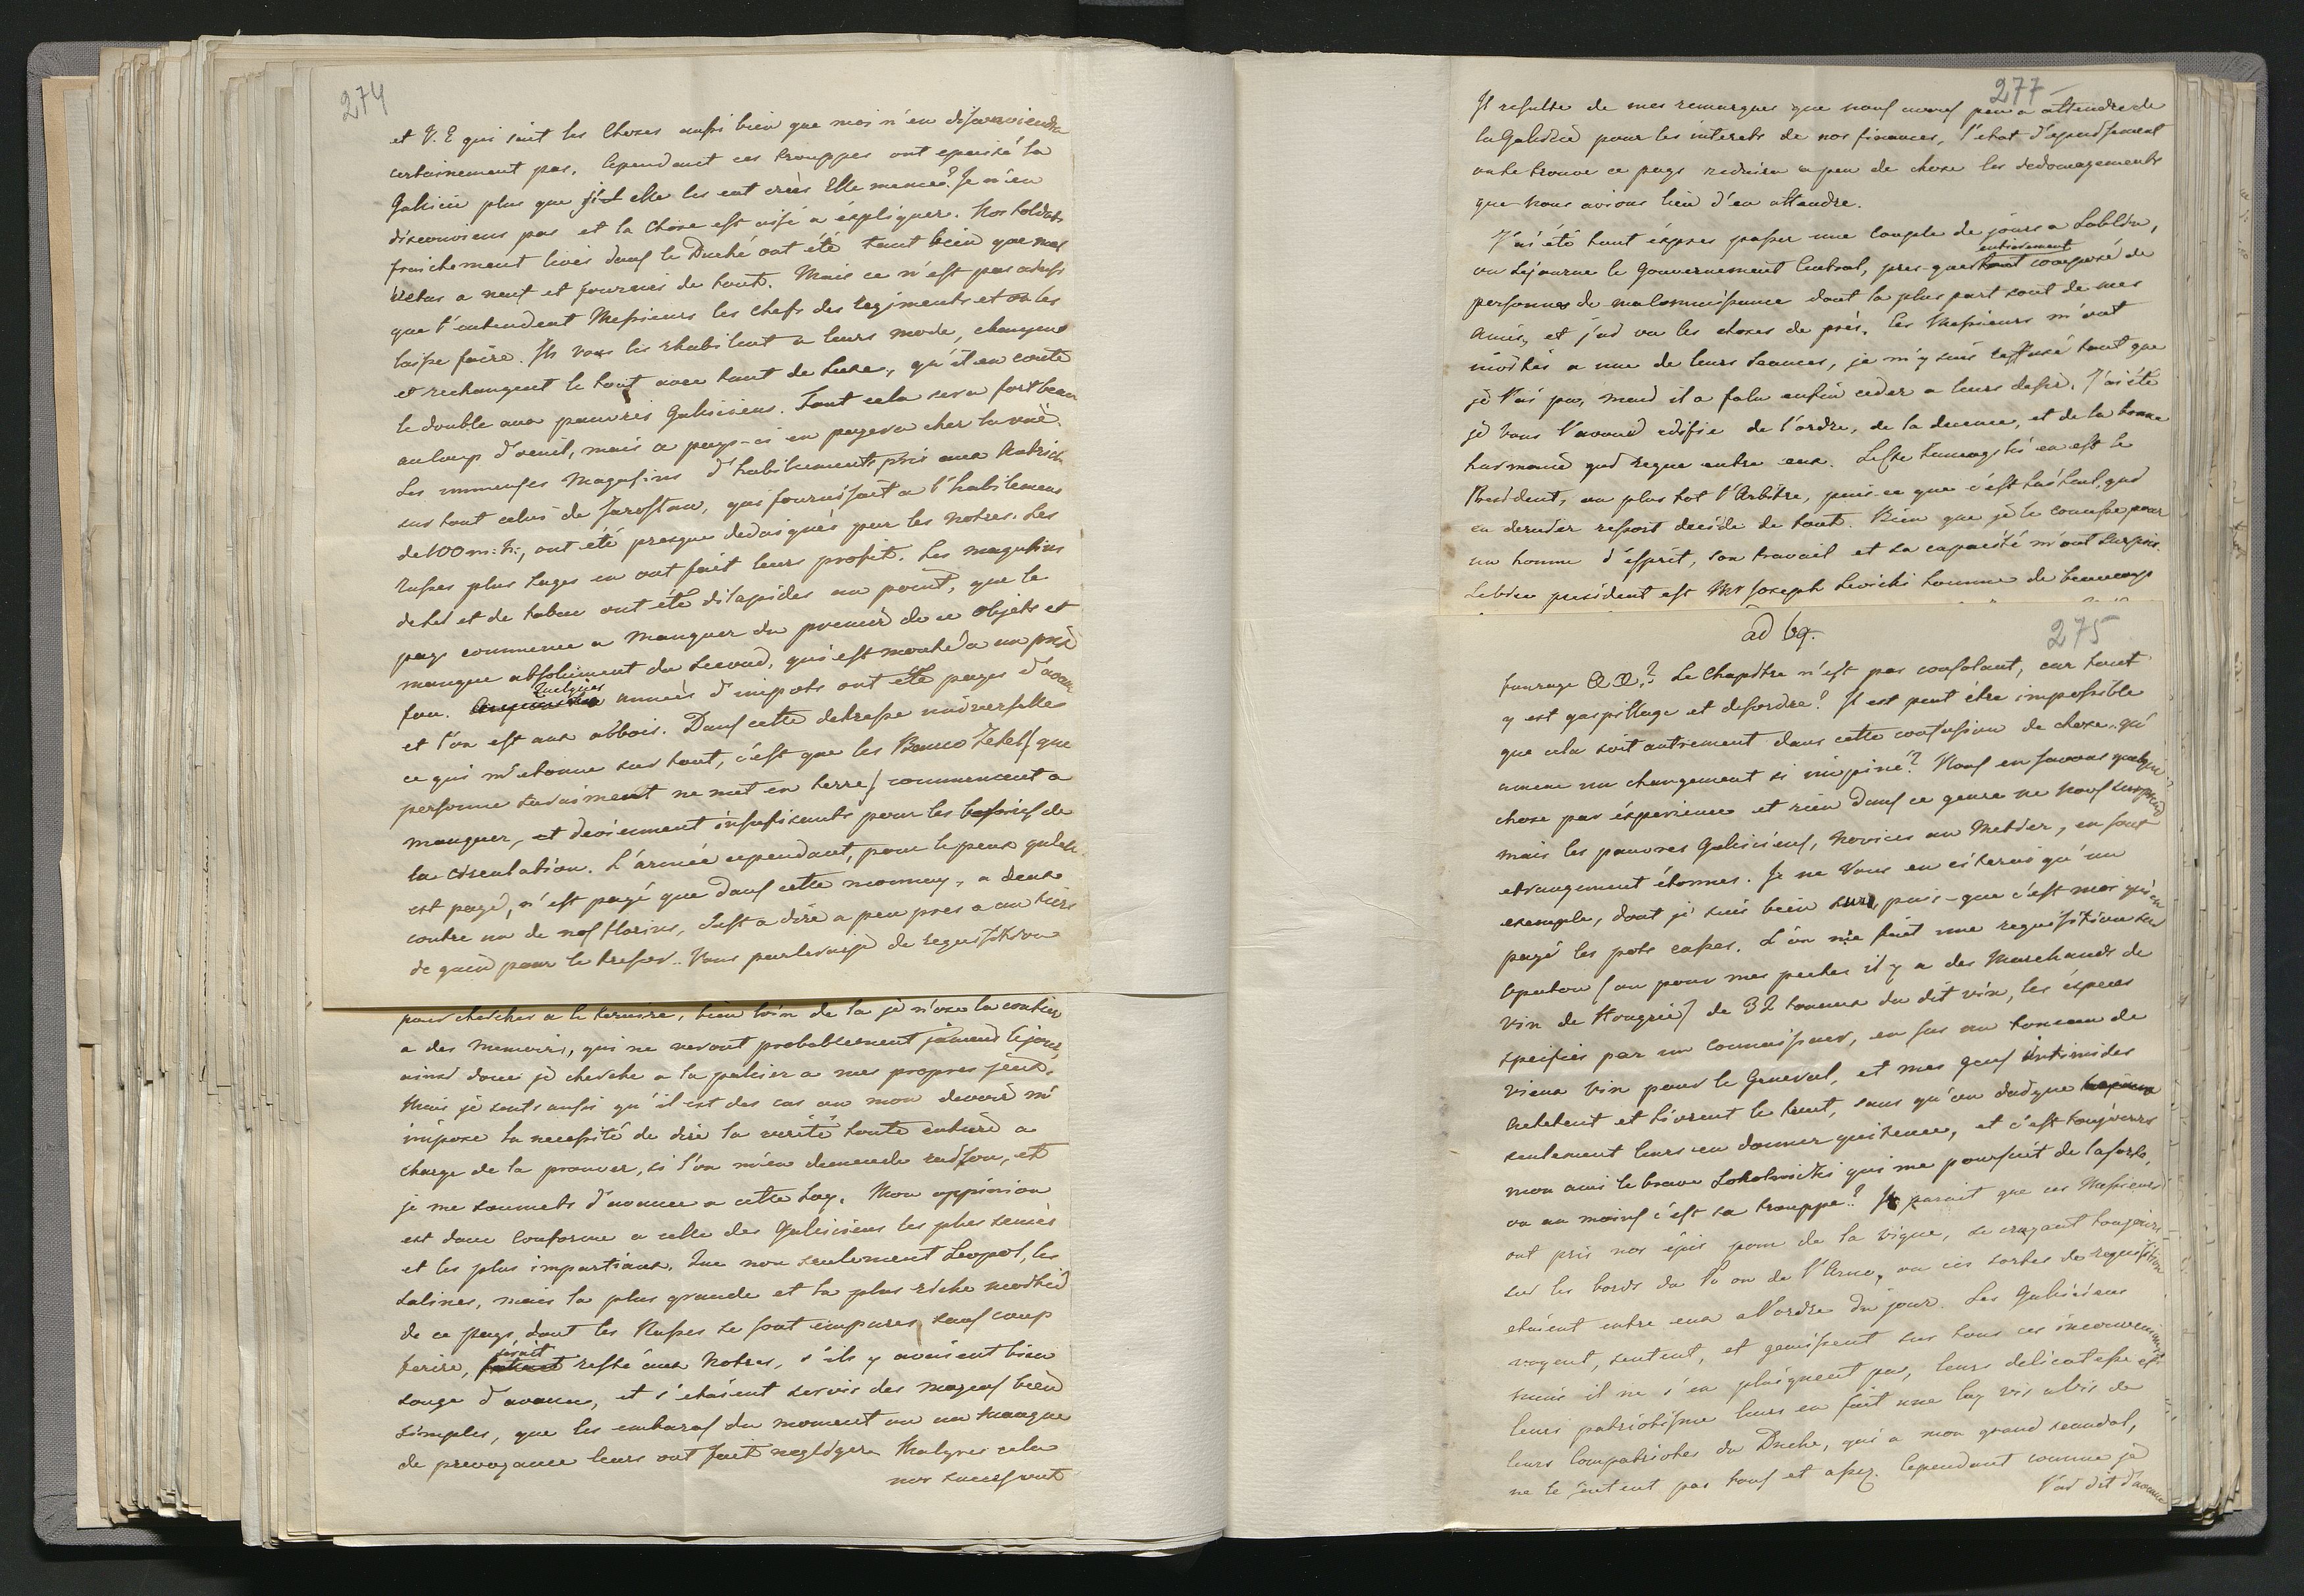 274
et V. E qui sait les choses aussi bien que moi n'en disconviendra
certainement pas. Cependant ces trouppes ont epuisé la
Galicie plus que si elle les eut créés Elle meme? Je n'en
disconviens pas et la chose est aisé a éxpliquer. Nos soldats
fraichement livés dans le Duché ont été tant bien que mal
vetus a neuf et fournis de tout. Mais ce n'est pas ainsi
que l'entendent Messieurs les chefs des regiments et on les
laisse faire. Ils vous les rhabilent a leurs mode, changent
et rechangent le tout avec tant de luxe, qu'il en coute
le double aux pauvres Galiciens. Tout cela sera fort beau
au coup d'oeuil, mais ce pays-ci en payera cher la vue.
Les immenses Magasins d'habilements pris aux Autrich:
sur tout celui de Jaroslau, qui fournissait a l'habilement
de 100 m: h:, ont été presque dedaignés par les notres. Les
Russes plus sages en ont fait leurs profit. Les magasins
de sel et de tabac ont été dilapidés au point, que le
pays commence a manquer du premier de ce objets et
manque absolument du second, qui est monté a un prix
fou. Quelques années d'impots ont été payes d'avan
et l'on est aux abbois. Dans cette detresse universelle
ce qui m'etonne sur tout, c'est que les Banco Zetel/que
personne surement ne met en terre/ commencent a
manquer, et deviennent insufisants pour les besoins de
la circulation. L'armée cependant, pour le peux qu'elle
est payé, n'est payé que dans cette monnay, a deux
contre un de nos florins, c'est a dire a peu pres a un tiers
de gain pour le tresor.. Vous parlerai-je de requisition
pour chercher a le ternire, bien loin de la je n'ose la confier
a des memoires, qui ne veront probablement jamais le jour,
ainsi donc je cherche a la palier a mes propres jeux.
Mais je sents aussi qu'il est des cas ou mon devoir m'
impose la necessité de dire la verité toute entiere a
charge de la prouver, si l'on m'en demende raison, et
je me soumets d'avance a cette loy. Mon oppinion
est donc conforme a celle des Galiciens les plus senses
et les plus impartiaux. Que non seulement Leopol, les
salines, mais la plus grande et la plus riche moitié
de ce pays, dont les Russes se sont emparés sans coup
ferire, serait resté aux notres, s'ils y avaient bien
songe d'avance, et s'etaient servis des moyens bien
simples, que les embaras du moment ou un manque
de prevoyance leurs ont fait negliger. Malgres cela
nos succes sont
277
Il resulte de mes remarques que nous avons peu a attendre de
la Galicie pour les interets de nos finances, l'etat d'epuissement
ou se trouve ce pays reduira a peu de chose les dedomagements
que nous avions lieu d'en attendre.
J'ai été tout éxpres passer une couple de jours a Lublin,
ou séjourne le Gouvernement Central, pres-que entierement composé de
personnes de ma connaissance dont la plus part sont de mes
Amis, et j'ai vu les choses de près. Ces Messieurs m'ont
invités a une de leurs seances, je m'y suis reffusé tant que
je l'ai pu, mais il a falu enfin ceder a leurs desir. J'ai été
je vous l'avoue edifie de l'ordre, de la decence, et de la bonne
harmonie qui regne entre eux. Le Cte Zamoyski en est le
President, ou plus tot l'Arbitre, puis-ce que c'est lui seul, qui
en dernier ressort decide de tout. Bien que je le connusse pour
un homme d'esprit, son travail et sa capacité m'ont surpris.
Le Vice president est Mr Joseph Lwicki homme de beaucoup
ad 69.
275
fourage &. &.? Le Chapitre n'est pas consolant, car tout
y est gaspillage et desordre? Il est peut être impossible
que cela soit autrement dans cette confusion de chose qu'
amene un changement si inopiné? Nous en savons quelque
chose par éxperience et rien dans ce genre ne nous surprend
mais les pauvres Galiciens, novices au Metier, en sont
etrangement étonnes. Je ne Vous en citerai qu'un
exemple, dont je suis bien sure, puis-que c'est moi qui en
payé les pots casses. L'on me fait une requisition sur
Opatow (ou pour mes peches il y a des Marchands de
vin de Hongrie) de 32 tonneaux du dit vin, les éspeces
specifiés par un connaisseur, en sus un tonneau de
vieux vin pour le General, et mes gens intimides
achetent et livrent le tout, sans qu'on daigne
seulement leurs en donner quitence, et c'est toujours
mon ami le brave Sokolnicki qui me poursuit de la sorte,
ou au moins c'est sa trouppe? Il parait que ces Messieurs
ont pris nos épis pour de la vigne, se croyant toujours
sur les bords du Pô ou de l'Arno, ou ces sortes de requisition
etaient entre eux a l'ordre du jour. Les Galiciens
voyent, sentent, et gemissent sur tous ces inconvenients
mais il ne s'en plaignent pas, leurs delicatesse et
leurs patriotisme leurs en fait une loy vis a vis de
leurs Compatriotes du Duche, qui a mon grand scandal,
ne le sentent pas tous et assez. Cependant comme je
l'ai dit d'avance